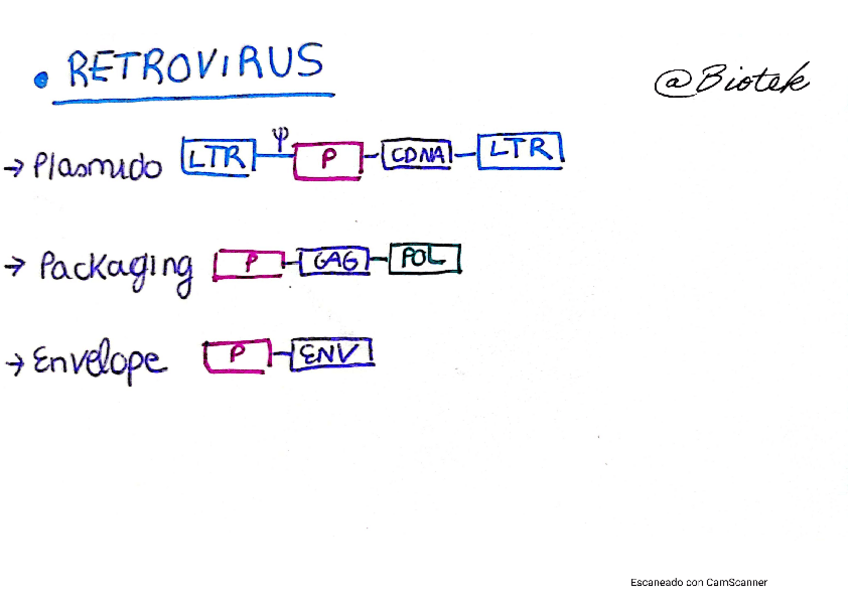 • RETROVIRUS
@Biotek
→ Plasmido LTR Ψ P CDNA LTR
→ Packaging P GAG POL
→ Envelope P ENV
Escaneado con CamScanner